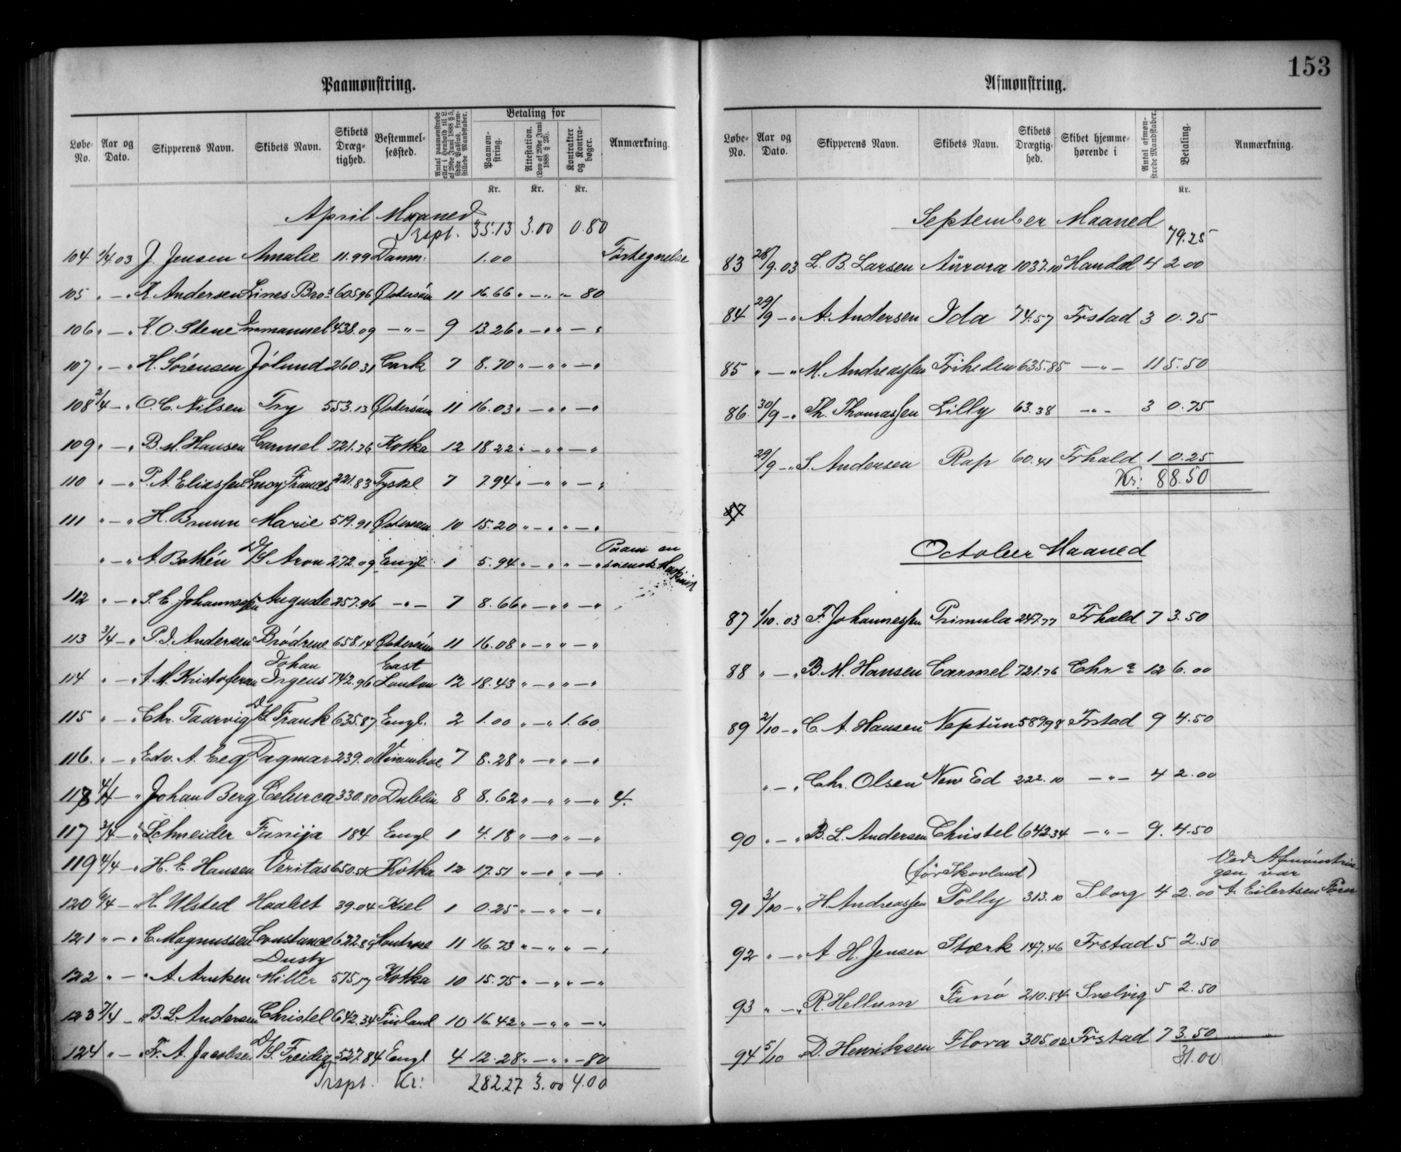 153
Paamønstring.
Løbe-No. Aar og Dato. Skipperens Navn. Skibets Navn. Skibets Dræg-tighed. Bestemmel-sessted. Betaling for Paamøn-string. Attestation. Kontrakter og Kontra-bøger. Anmærkning.
Kr. Kr. Kr.
April Maaned
Trspt. 35.13 3.00 0.80
104 1/4 03 J. Jensen Amalie 11.99 Danm. 1.00 Fortegnelse
105 " — " K. Andersen Lines Bros 605.96 Østersøn 11 16.66 " — " " — 80
106 " — " K. O. Stene Immanuel 438.09 — " — 9 13.26 " — " " — "
107 " — " H. Sörensen Jølund 260.31 7 8.70 " — " " — "
108 2/4 — " O. C. Nilsen Try 553.13 Østersøn 11 16.03 " — " " — "
109 " — " B. M. Hansen Carmel 721.76 Kotka 12 18.22 " — " " — "
110 " — " P. A. Eliassen Lucy Frances 221.83 Tyskl. 7 7.94 " — " " — "
111 " — " H. Bruun Marie 519.91 Østersøn 10 15.20 " — " " — "
" — " A. Bothén D/S Aron 272.09 Engl. 1 5.94 " — " " — " Paam en svensk Maskinist
112 " — " S. E. Johannessen Auguste 257.96 — " — 7 8.66 " — " " — "
113 3/4 — " P. I. Andersen Brödrene 658.14 Østersøn 11 16.08 " — " " — "
114 " — " A. M. Kristofersen Johan Irgens 742.96 East London 12 18.43 " — " " — "
115 " — " Chr. Taarvig D/S Frank 635.87 Engl. 2 1.00 " — " 1.60
116 " — " Edv. A. Eeg Dagmar 239.01 7 8.28 " — " " — "
118 4/4 — " Johan Berg Celurca 330.80 Dublin 8 8.62 " — " " — " 4.
117 3/4 — " Schneider Fanija 184 Engl 1 4.18 " — " " — "
119 4/4 — " H. E. Hansen Veritas 650.54 Kotka 12 17.51 " — " " — "
120 6/4 — " H. Ulsted Haabet 39.04 Kiel 1 0.25 " — " " — "
121 " — " C. Magnussen Constance 622.89 Montrose 11 16.73 " — " " — "
122 " — " A. Arntzen Dusty Miller 575.17 Kotka 10 15.75 " — " " — "
123 7/4 — " B. L. Andersen Christel 642.34 Finland 10 16.42 " — " " — "
124 " — " Fr. A. Jacobsen D/S Freidig 527.84 Engl 4 12.28 " — " " — 80
Trspt. Kr: 282.27 3.00 4.00
Afmønstring.
Løbe-No. Aar og Dato. Skipperens Navn. Skibets Navn. Skibets Drægtig-hed. Skibet hjemme-hørende i Antal afmøn-strede Mandskaber. Betaling. Anmærkning.
Kr.
September Maaned
79.25
83 28/9 03 L. B. Larsen Aurora 1037.10 Xandal 4 2.00
84 29/9 — " A. Andersen Ida 74.57 Frstad 3 0.75
85 " — " M. Andreassen Friheden 635.85 — " — 11 5.50
86 30/9 — " Th. Thomassen Lilly 63.38 — " — 3 0.75
29/9 — " S. Andersen Rap 60.41 Frhald 1 0.25
Kr: 88.50
October Maaned
87 1/10 03 F. Johannessen Primula 247.77 Frhald 7 3.50
88 " — " B. M. Hansen Carmel 721.76 Chr a 12 6.00
89 2/10 — " C. A. Hansen Neptun 589.98 Frstad 9 4.50
" — " Chr. Olsen New Ed 222.10 — " — 4 2.00
90 " — " B. L. Andersen Christel 642.34 — " — 9. 4.50
(før Skovland) Ved Afmønstrin-gen var
91 3/10 — " H. Andreassen Polly 313.10 Sborg 4 2.00 A. Eilertsen Fører
92 " — " A. H. Jensen Stærk 147.46 Frstad 5 2.50
93 " — " R. Hellum Fanö 210.84 Svelvig 5 2.50
94 5/10 D. Henriksen Flora 305.02 Frstad 7 3.50
31.00